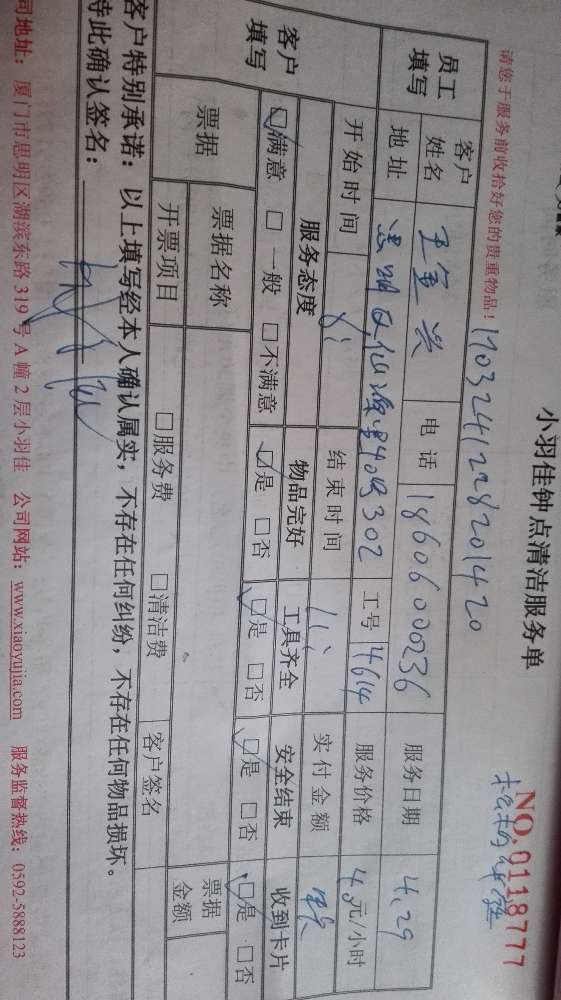 小羽佳钟点清洁服务单
NO.0118777
请您于服务前收拾好您的贵重物品！1703241228201420
员工填写 客户姓名 电话 18606000236 服务日期 4.29
地址 工号 4614 服务价格 40元/小时
开始时间 8: 结束时间 11: 实付金额
客户填写 服务态度 物品完好 工具齐全 安全结束 收到卡片
☑满意 □一般 □不满意 ☑是 □否 ☑是 □否 ☑是 □否 ☑是 □否
票据 票据名称 票据金额
开票项目 □服务费 □清洁费 客户签名
客户特别承诺：以上填写经本人确认属实，不存在任何纠纷，不存在任何物品损坏。
特此确认签名：
司地址：厦门市思明区湖滨东路319号A幢2层小羽佳 公司网站：www.xiaoyujia.com 服务监督热线：0592-5888123